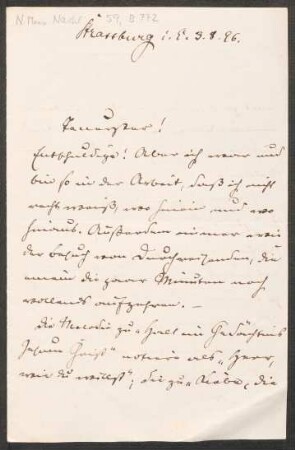 N. Mus. Nachl. 59, B 772
Strassburg i. E. 3.8.96.
Teuerster!
Entschuldige! Aber ich war und
bin so in der Arbeit, daß ich nicht
recht weiß, wo hinein und wo
hinaus. Außerdem immer wieder
der Besuch von Durchreisenden, die
einem die paar Minuten noch
vollends auffressen. —
Die Melodie zu "Halt im Gedächtnis
Jesum Christ" notiere als "Herr,
wie du willst"; die zu "Liebe, die